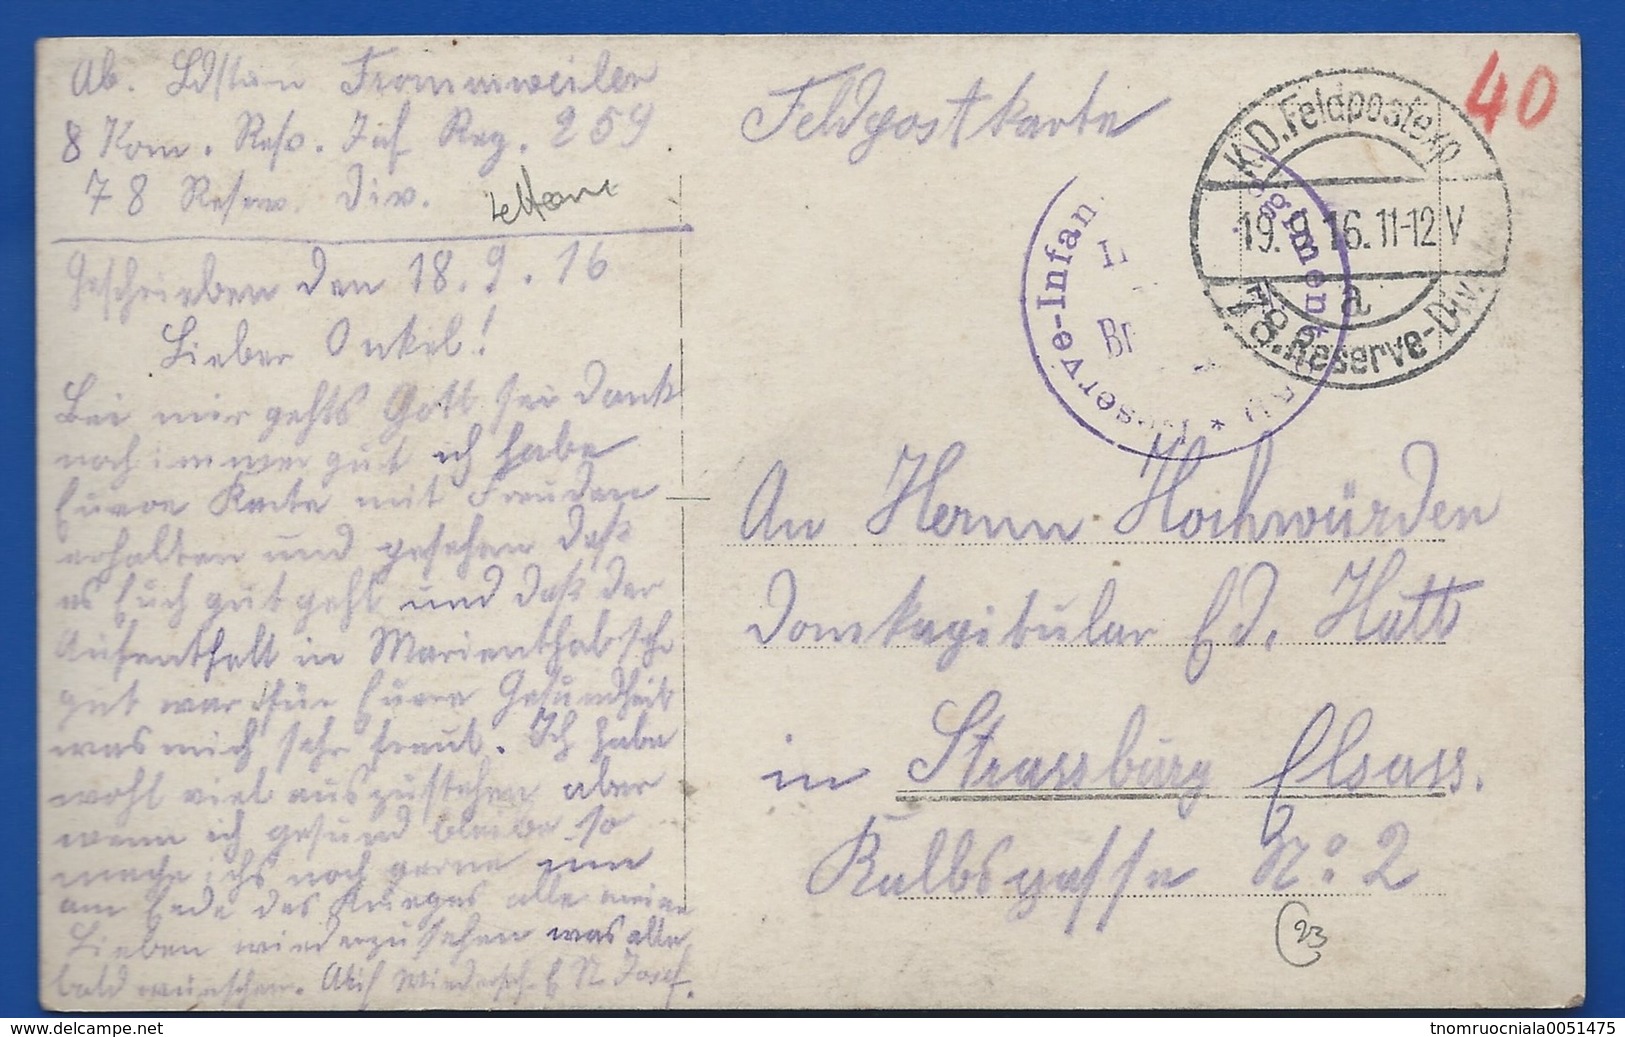 Ab. Ldstūn Frommweiler
8 Kom. Res. Inf Reg. 259
78 Reserv. Div.
Geschrieben den 18.9.16
Lieber Onkel!
Bei mir gehts Gott sei dank
noch immer gut ich habe
Eure Karte mit Freuden
erhalten und gesehen daß
es Euch gut geht und daß der
Aufenthalt in Marienthal sehr
gut war für Eure Gesundheit
was mich sehr freut. Ich habe
wohl viel auszustehen aber
wenn ich gesund bleibe so
mache ichs noch gerne um
am Ende des Krieges alle meine
Lieben wiederzusehen was alle
bald wünschen. Auf Wiedersh. E N. Josef.
Feldpostkarte
40
K.D. Feldpostexp.
19.9.16. 11-12 V
a
78. Reserve-Div.
Reserve-Infan
egiment
An Herrn Hochwürden
Domkapitular Ed. Hatts
in Strassburg Elsass.
Kalbsgasse No. 2
23
tnomruocniala0051475
www.delcampe.net